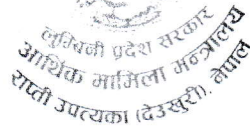 लुम्बिनी प्रदेश सरकार
आर्थिक मामिला मन्त्रालय
राप्ती उपत्यका (देउखुरी), नेपाल